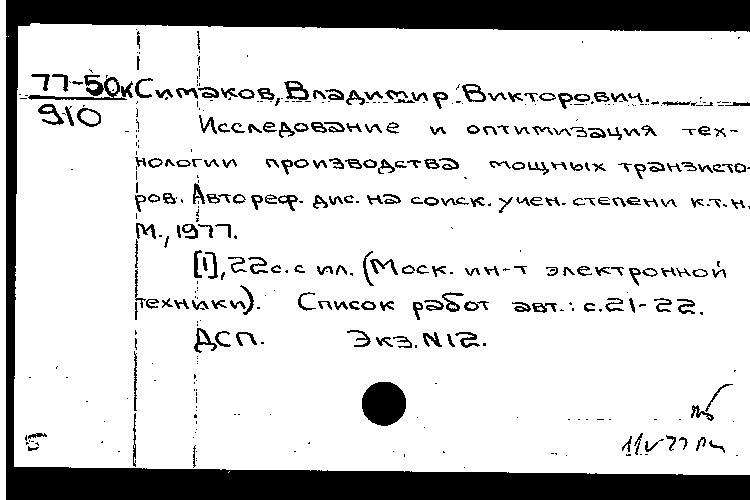 77-50к Симаков, Владимир Викторович.
910
Исследование и оптимизация тех-
нологии производства мощных транзисто-
ров. Автореф. дис. на соиск. учен. степени к.т.н.
М., 1977.
[1], 22с. с ил. (Моск. ин-т электронной
техники). Список работ авт.: с.21-22.
ДСП. Экз. N12.
Б